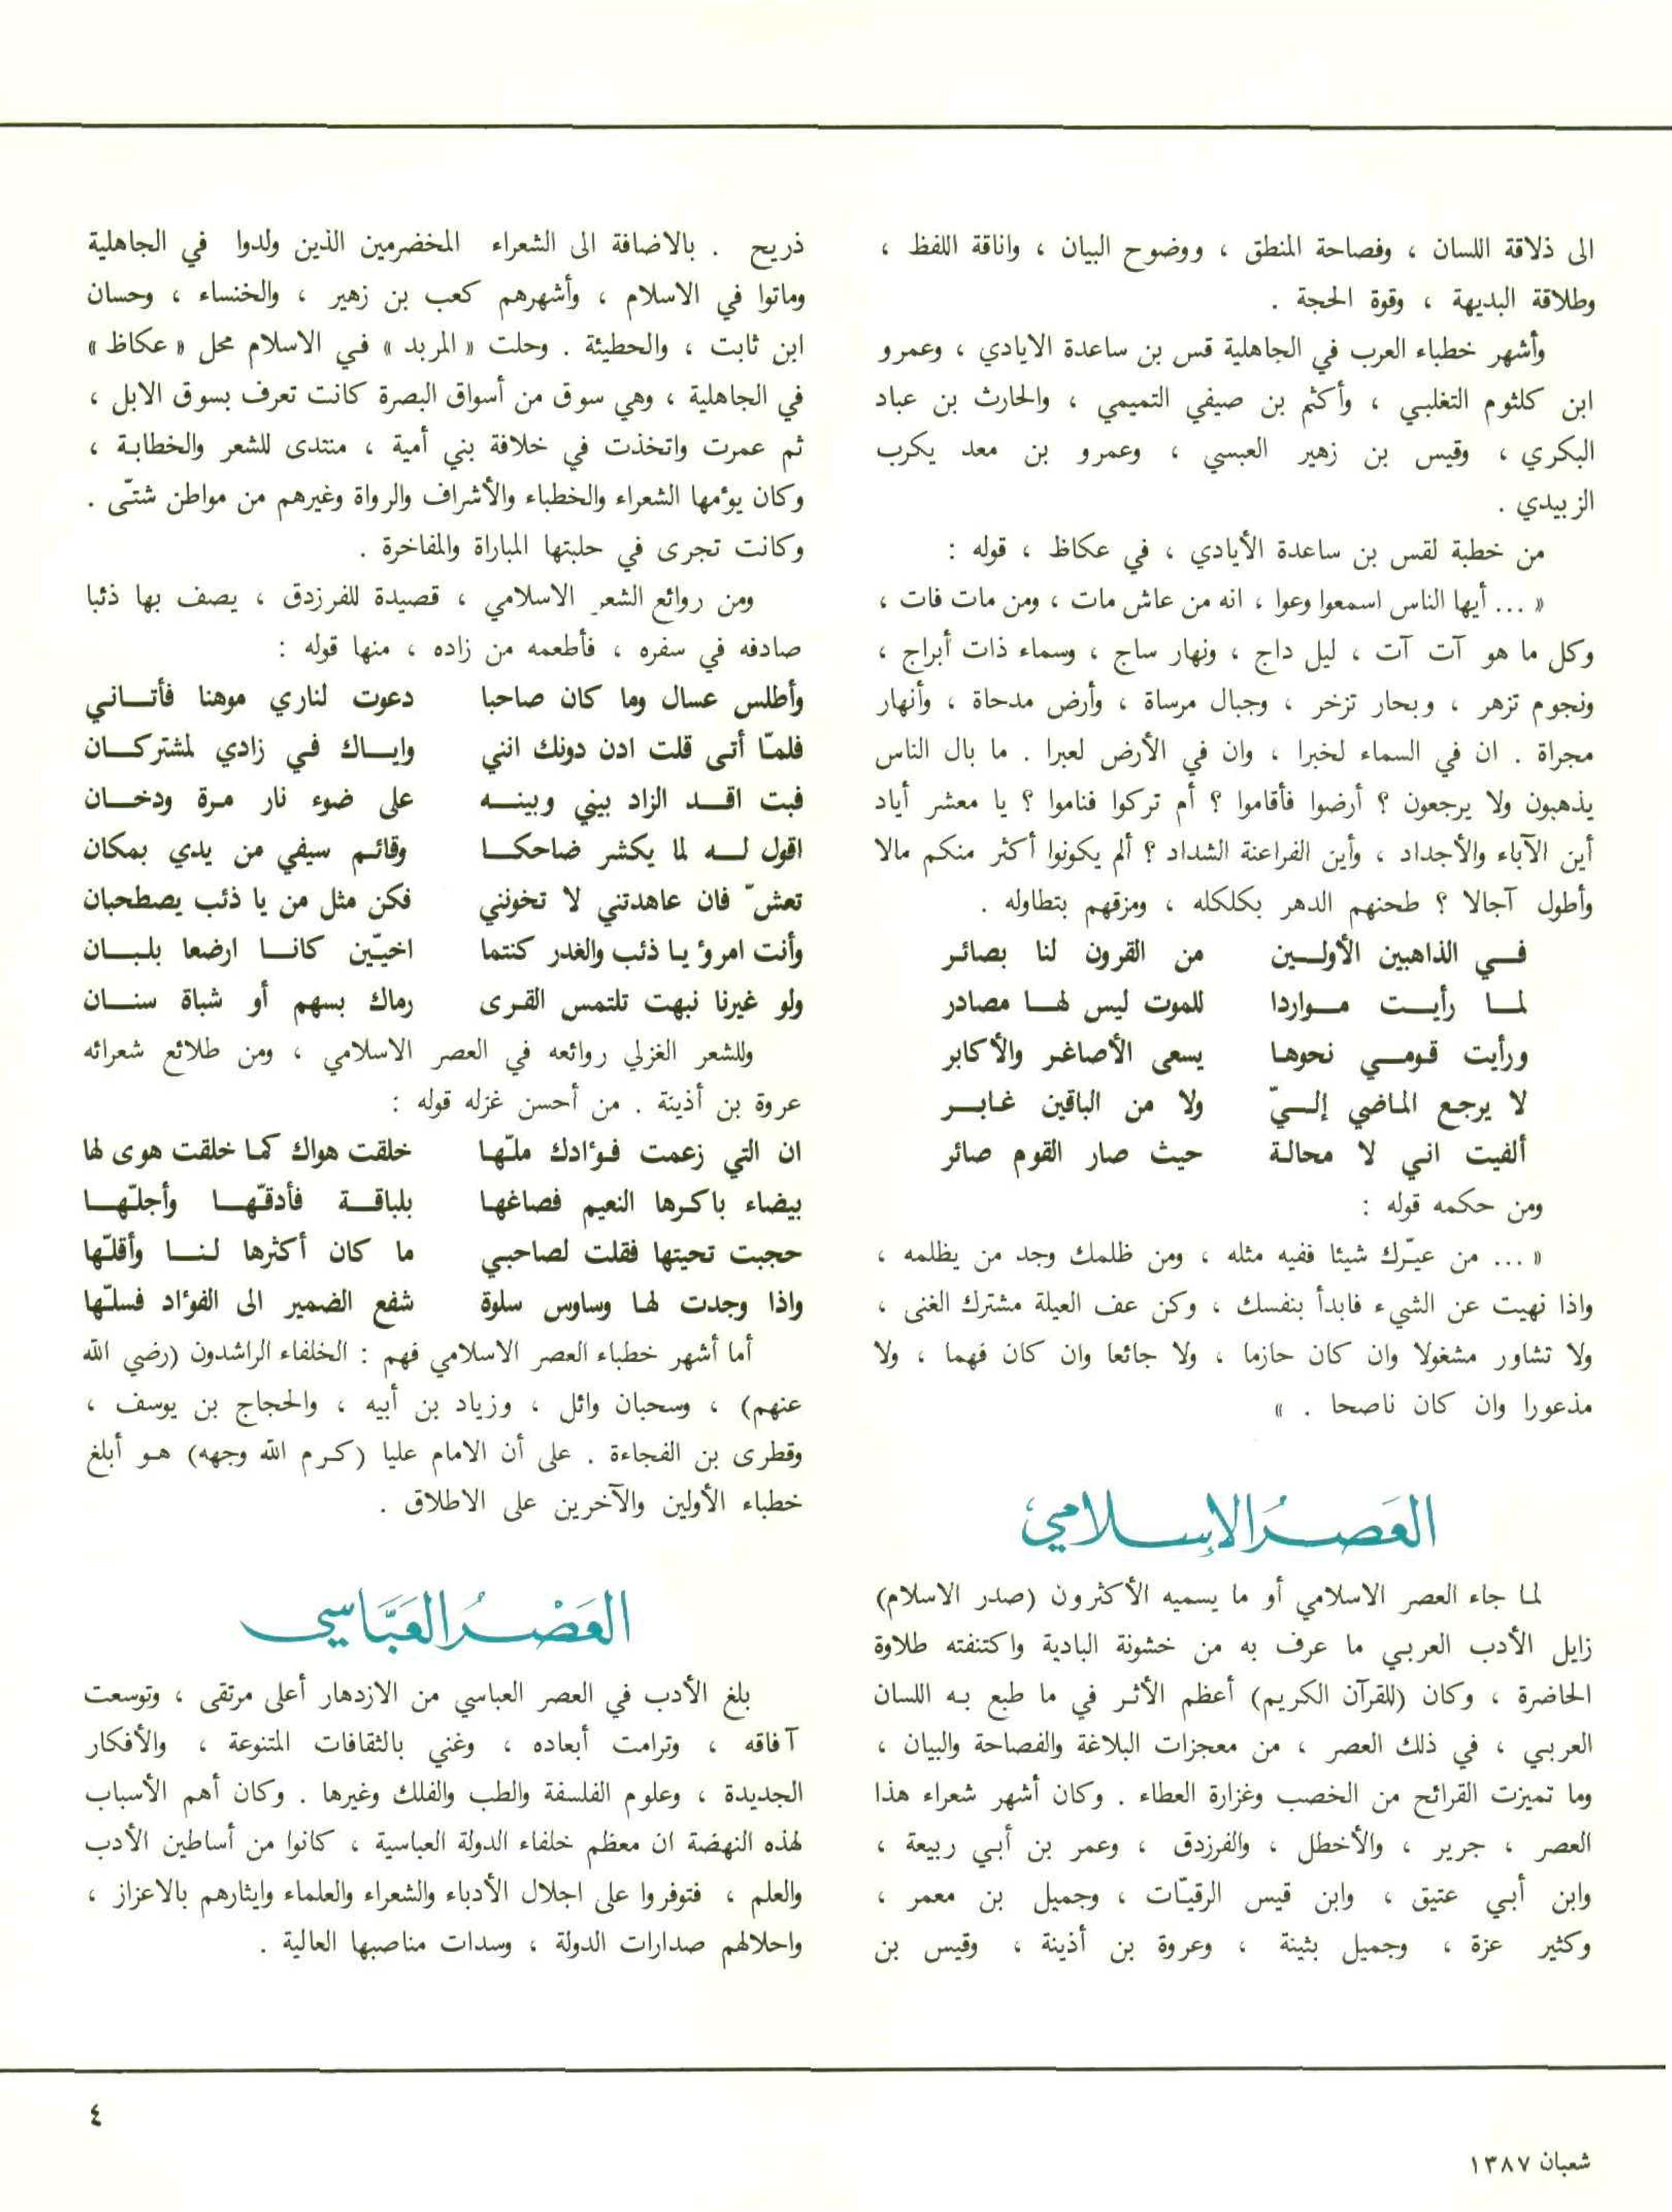 الى ذلاقة اللسان ، وفصاحة المنطق ، ووضوح البيان ، واناقة اللفظ ،
وطلاقة البديهة ، وقوة الحجة .
وأشهر خطباء العرب في الجاهلية قس بن ساعدة الايادي ، وعمرو
ابن كلثوم التغلبي ، وأكثم بن صيفي التميمي ، والحارث بن عباد
البكري ، وقيس بن زهير العبسي ، وعمرو بن معد يكرب
الزبيدي .
من خطبة لقس بن ساعدة الأيادي ، في عكاظ ، قوله :
« ... أيها الناس اسمعوا وعوا ، انه من عاش مات ، ومن مات فات ،
وكل ما هو آت آت ، ليل داج ، ونهار ساج ، وسماء ذات أبراج ،
ونجوم تزهر ، وبحار تزخر ، وجبال مرساة ، وأرض مدحاة ، وأنهار
مجراة . ان في السماء لخبرا ، وان في الأرض لعبرا . ما بال الناس
يذهبون ولا يرجعون ؟ أرضوا فأقاموا ؟ أم تركوا فناموا ؟ يا معشر أياد
أين الآباء والأجداد ، وأين الفراعنة الشداد ؟ ألم يكونوا أكثر منكم مالا
وأطول آجالا ؟ طحنهم الدهر بكلكله ، ومزقهم بتطاوله .
فـــي الذاهبين الأولـــين من القرون لنا بصائر
لمـــا رأيـــت مـــواردا للموت ليس لهـــا مصادر
ورأيت قومـــي نحوها يسعى الأصاغر والأكابر
لا يرجع الماضي إلـــيّ ولا من الباقين غابـــر
ألفيت اني لا محالة حيث صار القوم صائر
ومن حكمه قوله :
« ... من عيّرك شيئا ففيه مثله ، ومن ظلمك وجد من يظلمه ،
واذا نهيت عن الشيء فابدأ بنفسك ، وكن عف العيلة مشترك الغنى ،
ولا تشاور مشغولا وان كان حازما ، ولا جائعا وان كان فهما ، ولا
مذعورا وان كان ناصحا . »
العَصـــرُ الإســـلامي
لما جاء العصر الاسلامي أو ما يسميه الأكثرون (صدر الاسلام)
زايل الأدب العربي ما عرف به من خشونة البادية واكتنفته طلاوة
الحاضرة ، وكان (للقرآن الكريم) أعظم الأثر في ما طبع به اللسان
العربي ، في ذلك العصر ، من معجزات البلاغة والفصاحة والبيان ،
وما تميزت القرائح من الخصب وغزارة العطاء . وكان أشهر شعراء هذا
العصر ، جرير ، والأخطل ، والفرزدق ، وعمر بن أبي ربيعة ،
وابن أبي عتيق ، وابن قيس الرقيّات ، وجميل بن معمر ،
وكثير عزة ، وجميل بثينة ، وعروة بن أذينة ، وقيس بن
ذريح . بالاضافة الى الشعراء المخضرمين الذين ولدوا في الجاهلية
وماتوا في الاسلام ، وأشهرهم كعب بن زهير ، والخنساء ، وحسان
ابن ثابت ، والحطيئة . وحلت « المربد » في الاسلام محل « عكاظ »
في الجاهلية ، وهي سوق من أسواق البصرة كانت تعرف بسوق الابل ،
ثم عمرت واتخذت في خلافة بني أمية ، منتدى للشعر والخطابة ،
وكان يؤمها الشعراء والخطباء والأشراف والرواة وغيرهم من مواطن شتّى .
وكانت تجرى في حلبتها المباراة والمفاخرة .
ومن روائع الشعر الاسلامي ، قصيدة للفرزدق ، يصف بها ذئبا
صادفه في سفره ، فأطعمه من زاده ، منها قوله :
وأطلس عسال وما كان صاحبا دعوت لناري موهنا فأتـــاني
فلمّا أتى قلت ادن دونك انني وايـــاك في زادي لمشتركـــان
فبت اقـــد الزاد بيني وبينـــه على ضوء نار مرة ودخـــان
اقول لـــه لما يكشر ضاحكـــا وقائم سيفي من يدي بمكان
تعشّ فان عاهدتني لا تخونني فكن مثل من يا ذئب يصطحبان
وأنت امرؤ يا ذئب والغدر كنتما اخيّين كانـــا ارضعا بلبـــان
ولو غيرنا نبهت تلتمس القرى رماك بسهم أو شباة سنـــان
وللشعر الغزلي روائعه في العصر الاسلامي ، ومن طلائع شعرائه
عروة بن أذينة . من أحسن غزله قوله :
ان التي زعمت فؤادك ملّها خلقت هواك كما خلقت هوى لها
بيضاء باكرها النعيم فصاغها بلباقـــة فأدقّهـــا وأجلّهـــا
حجبت تحيتها فقلت لصاحبي ما كان أكثرها لنـــا وأقلّها
واذا وجدت لها وساوس سلوة شفع الضمير الى الفؤاد فسلّها
أما أشهر خطباء العصر الاسلامي فهم : الخلفاء الراشدون (رضي الله
عنهم) ، وسحبان وائل ، وزياد بن أبيه ، والحجاج بن يوسف ،
وقطرى بن الفجاءة . على أن الامام عليا (كرم الله وجهه) هو أبلغ
خطباء الأولين والآخرين على الاطلاق .
العَصْـــرُ العَبَّاسي
بلغ الأدب في العصر العباسي من الازدهار أعلى مرتقى ، وتوسعت
آفاقه ، وترامت أبعاده ، وغني بالثقافات المتنوعة ، والأفكار
الجديدة ، وعلوم الفلسفة والطب والفلك وغيرها . وكان أهم الأسباب
لهذه النهضة ان معظم خلفاء الدولة العباسية ، كانوا من أساطين الأدب
والعلم ، فتوفروا على اجلال الأدباء والشعراء والعلماء وايثارهم بالاعزاز ،
واحلالهم صدارات الدولة ، وسدات مناصبها العالية .
٤
شعبان ١٣٨٧